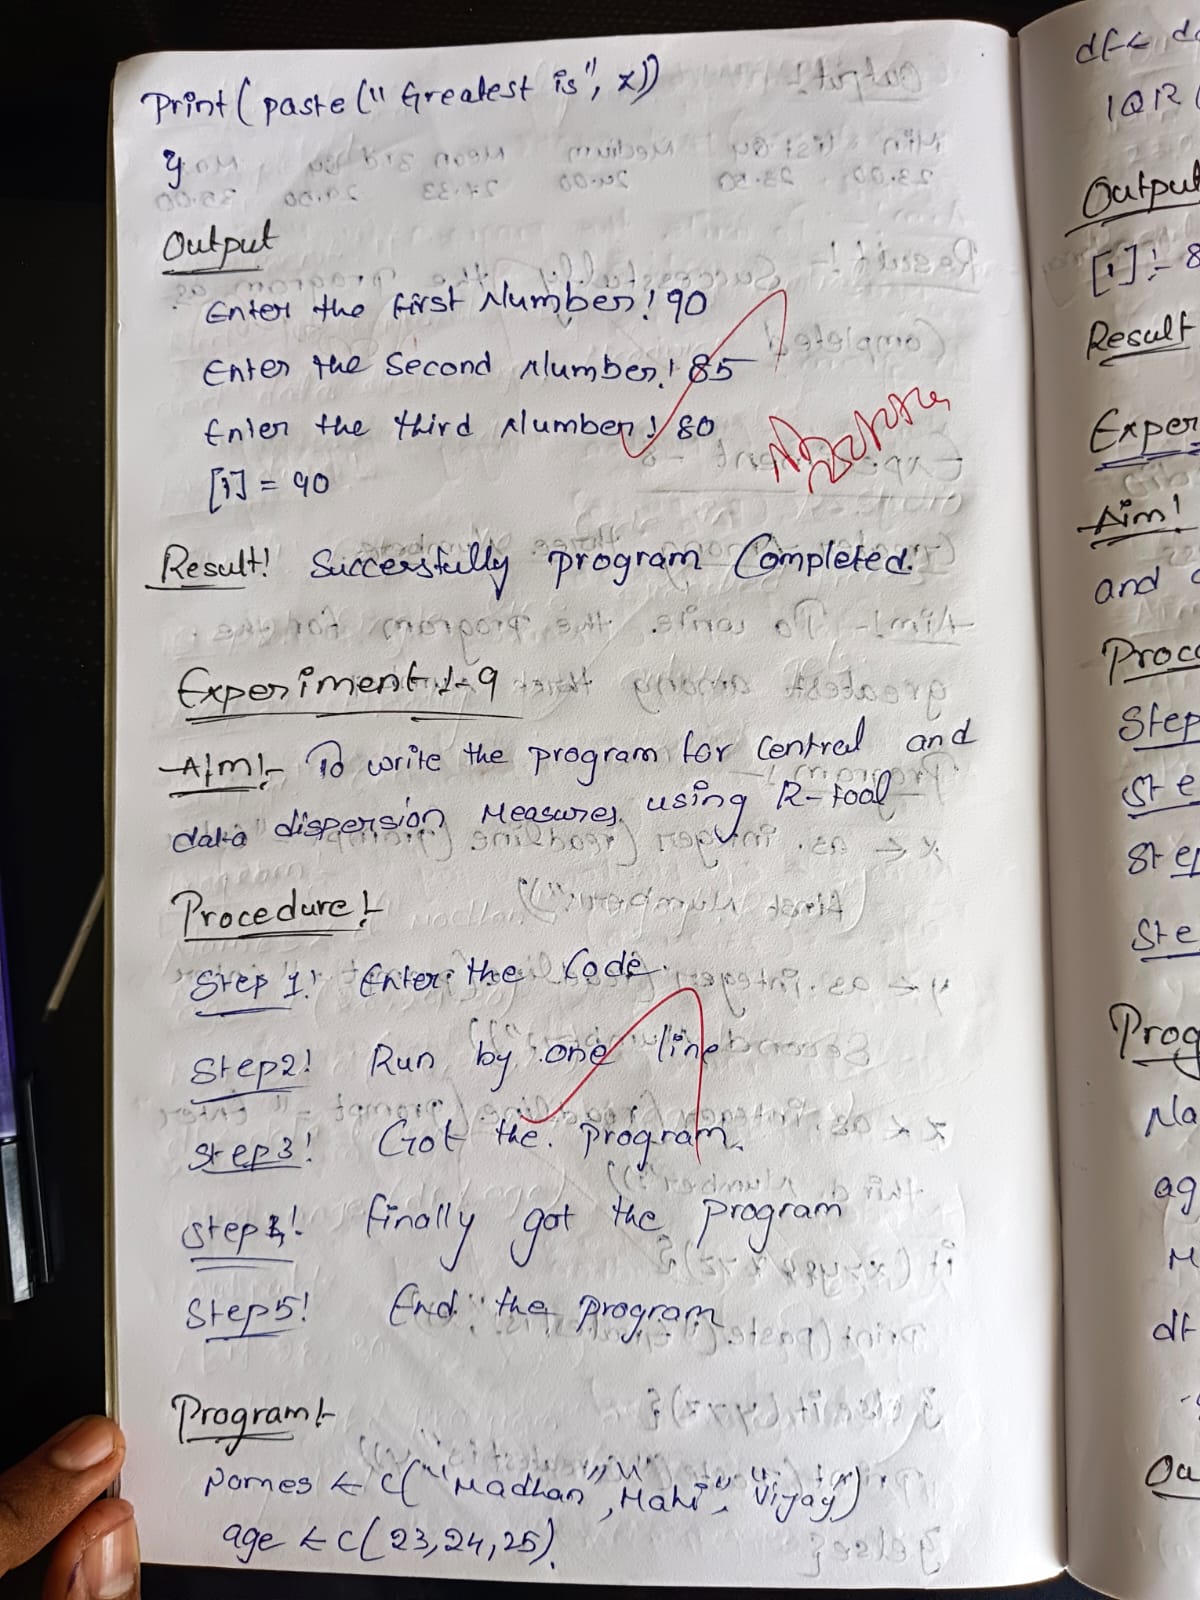 Print(paste("Greatest is", x))
}
Output
Enter the first Number! 90
Enter the Second Number! 85
Enter the third Number! 80
[1] = 90
Result! Successfully program Completed.
Experiment :- 9
Aim:- To write the program for Central and
data dispersion Measures using R-tool
Procedure:-
Step 1! Enter the Code.
Step2! Run by one line
Step3! Got the program.
Step4! finally got the program
Step5! End the program
Program:-
Names <- c("Madhan", "Mahi", "Vijay")
age <- c(23,24,25).
df<
IQR(
Output
[1]:- 8
Result
Exper
Aim!
and
Proce
Step
Ste
Step
Ste
Prog
Na
ag
M
df
Ou